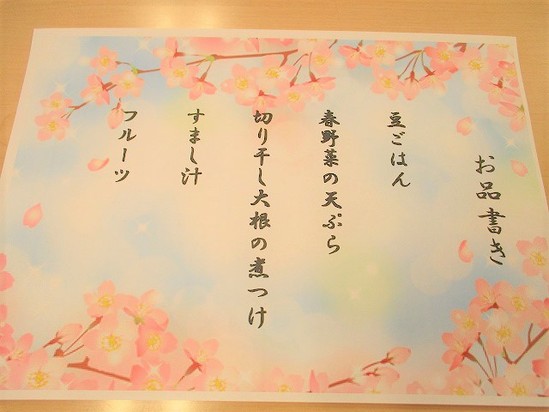 お品書き
豆ごはん
春野菜の天ぷら
切り干し大根の煮つけ
すまし汁
フルーツ